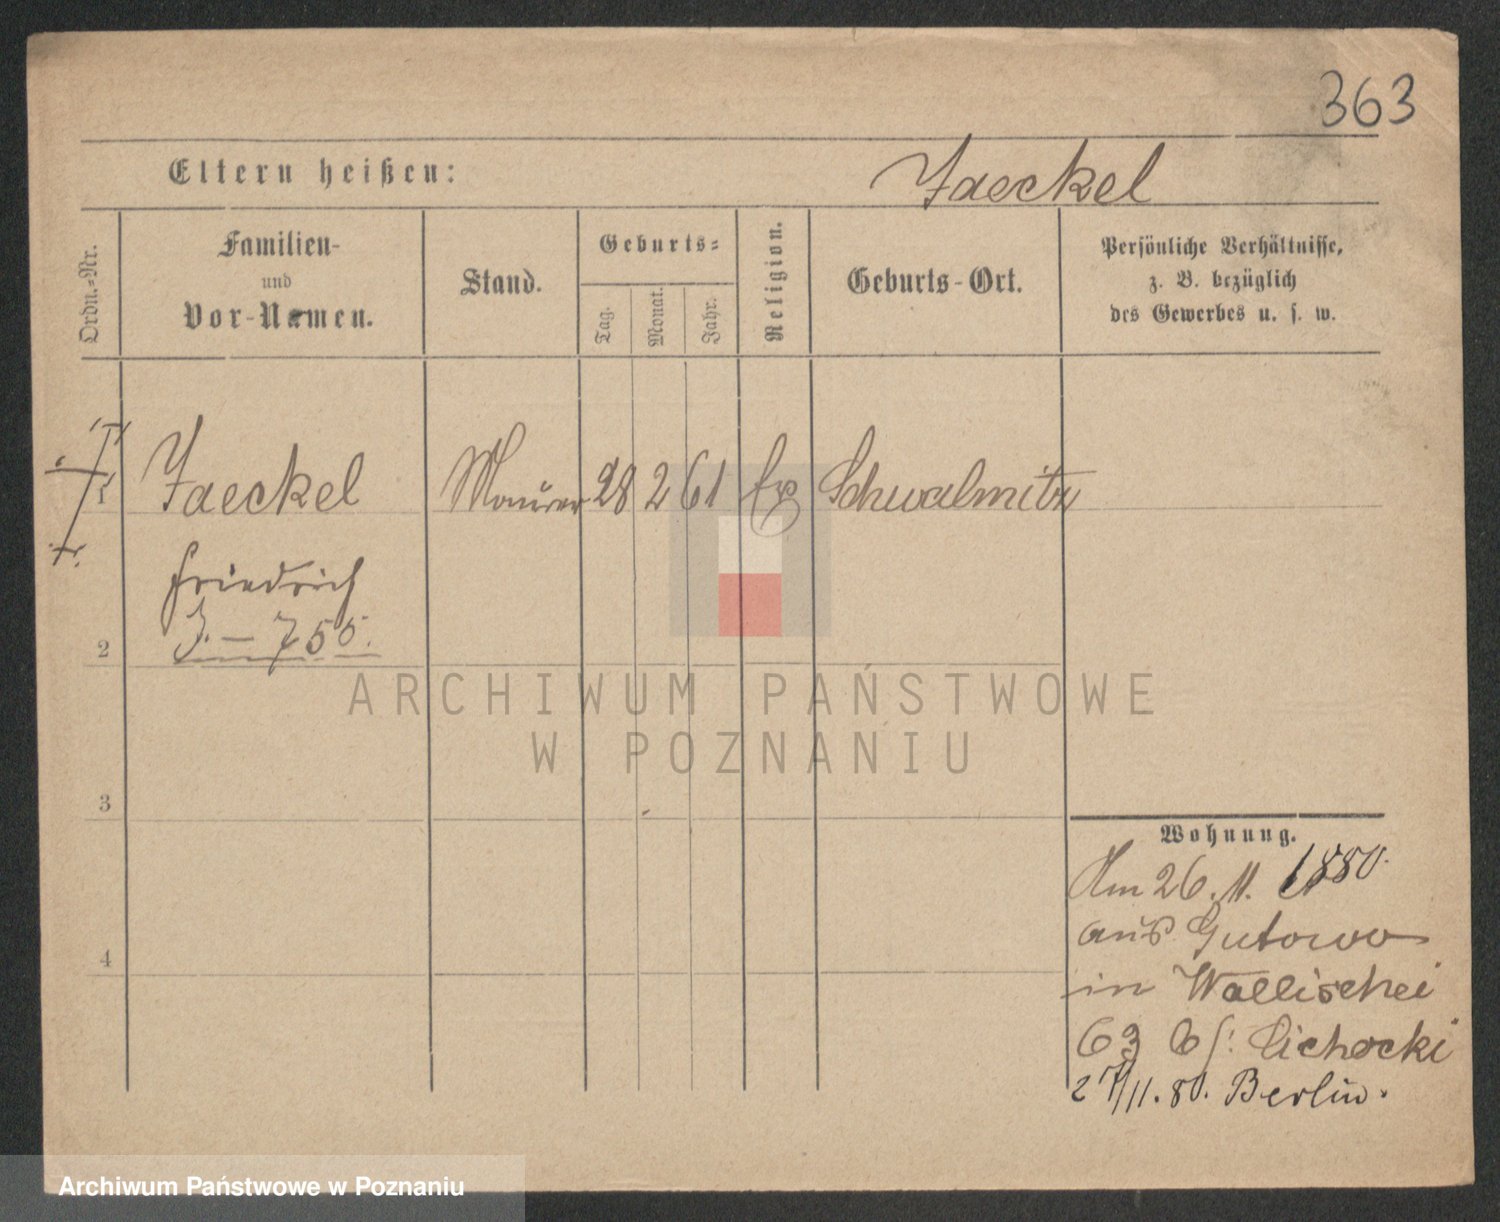 363
Eltern heißen:
Jaeckel
Ordn.-Nr.
Familien-
und
Vor-Namen.
Stand.
Geburts-
Tag.
Monat.
Jahr.
Religion.
Geburts-Ort.
Persönliche Verhältnisse,
z. B. bezüglich
des Gewerbes u. s. w.
1 Jaeckel Maurer 28 2 61 Schwalmitz
Friedrich
J. – 755.
2
3
4
ARCHIWUM PAŃSTWOWE
W POZNANIU
Wohnung.
Am 26. 11. 1880.
aus Gutowo
in Wallischei
63 Cichocki
27/11. 80. Berlin.
Archiwum Państwowe w Poznaniu